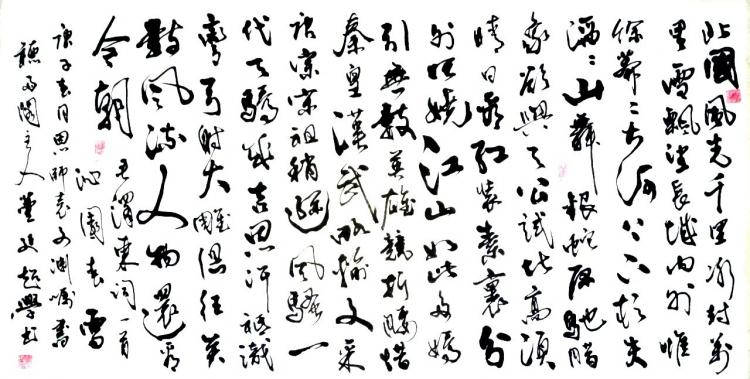 北國風光千里冰封萬
里雪飄望長城內外惟
餘莽〻大河上下頓失
滔〻山舞銀蛇原馳蠟
象欲與天公試比高須
晴日看紅裝素裹分
外妖嬈江山如此多嬌
引無數英雄競折腰惜
秦皇漢武略輸文采
唐宗宋祖稍遜風騷一
代天驕成吉思汗祗識
彎弓射大雕俱往矣
數風流人物還看
今朝
毛澤東詞一首
沁園春雪
庚子春月思師袁文渊囑書
聽雨閣主人董延超學書